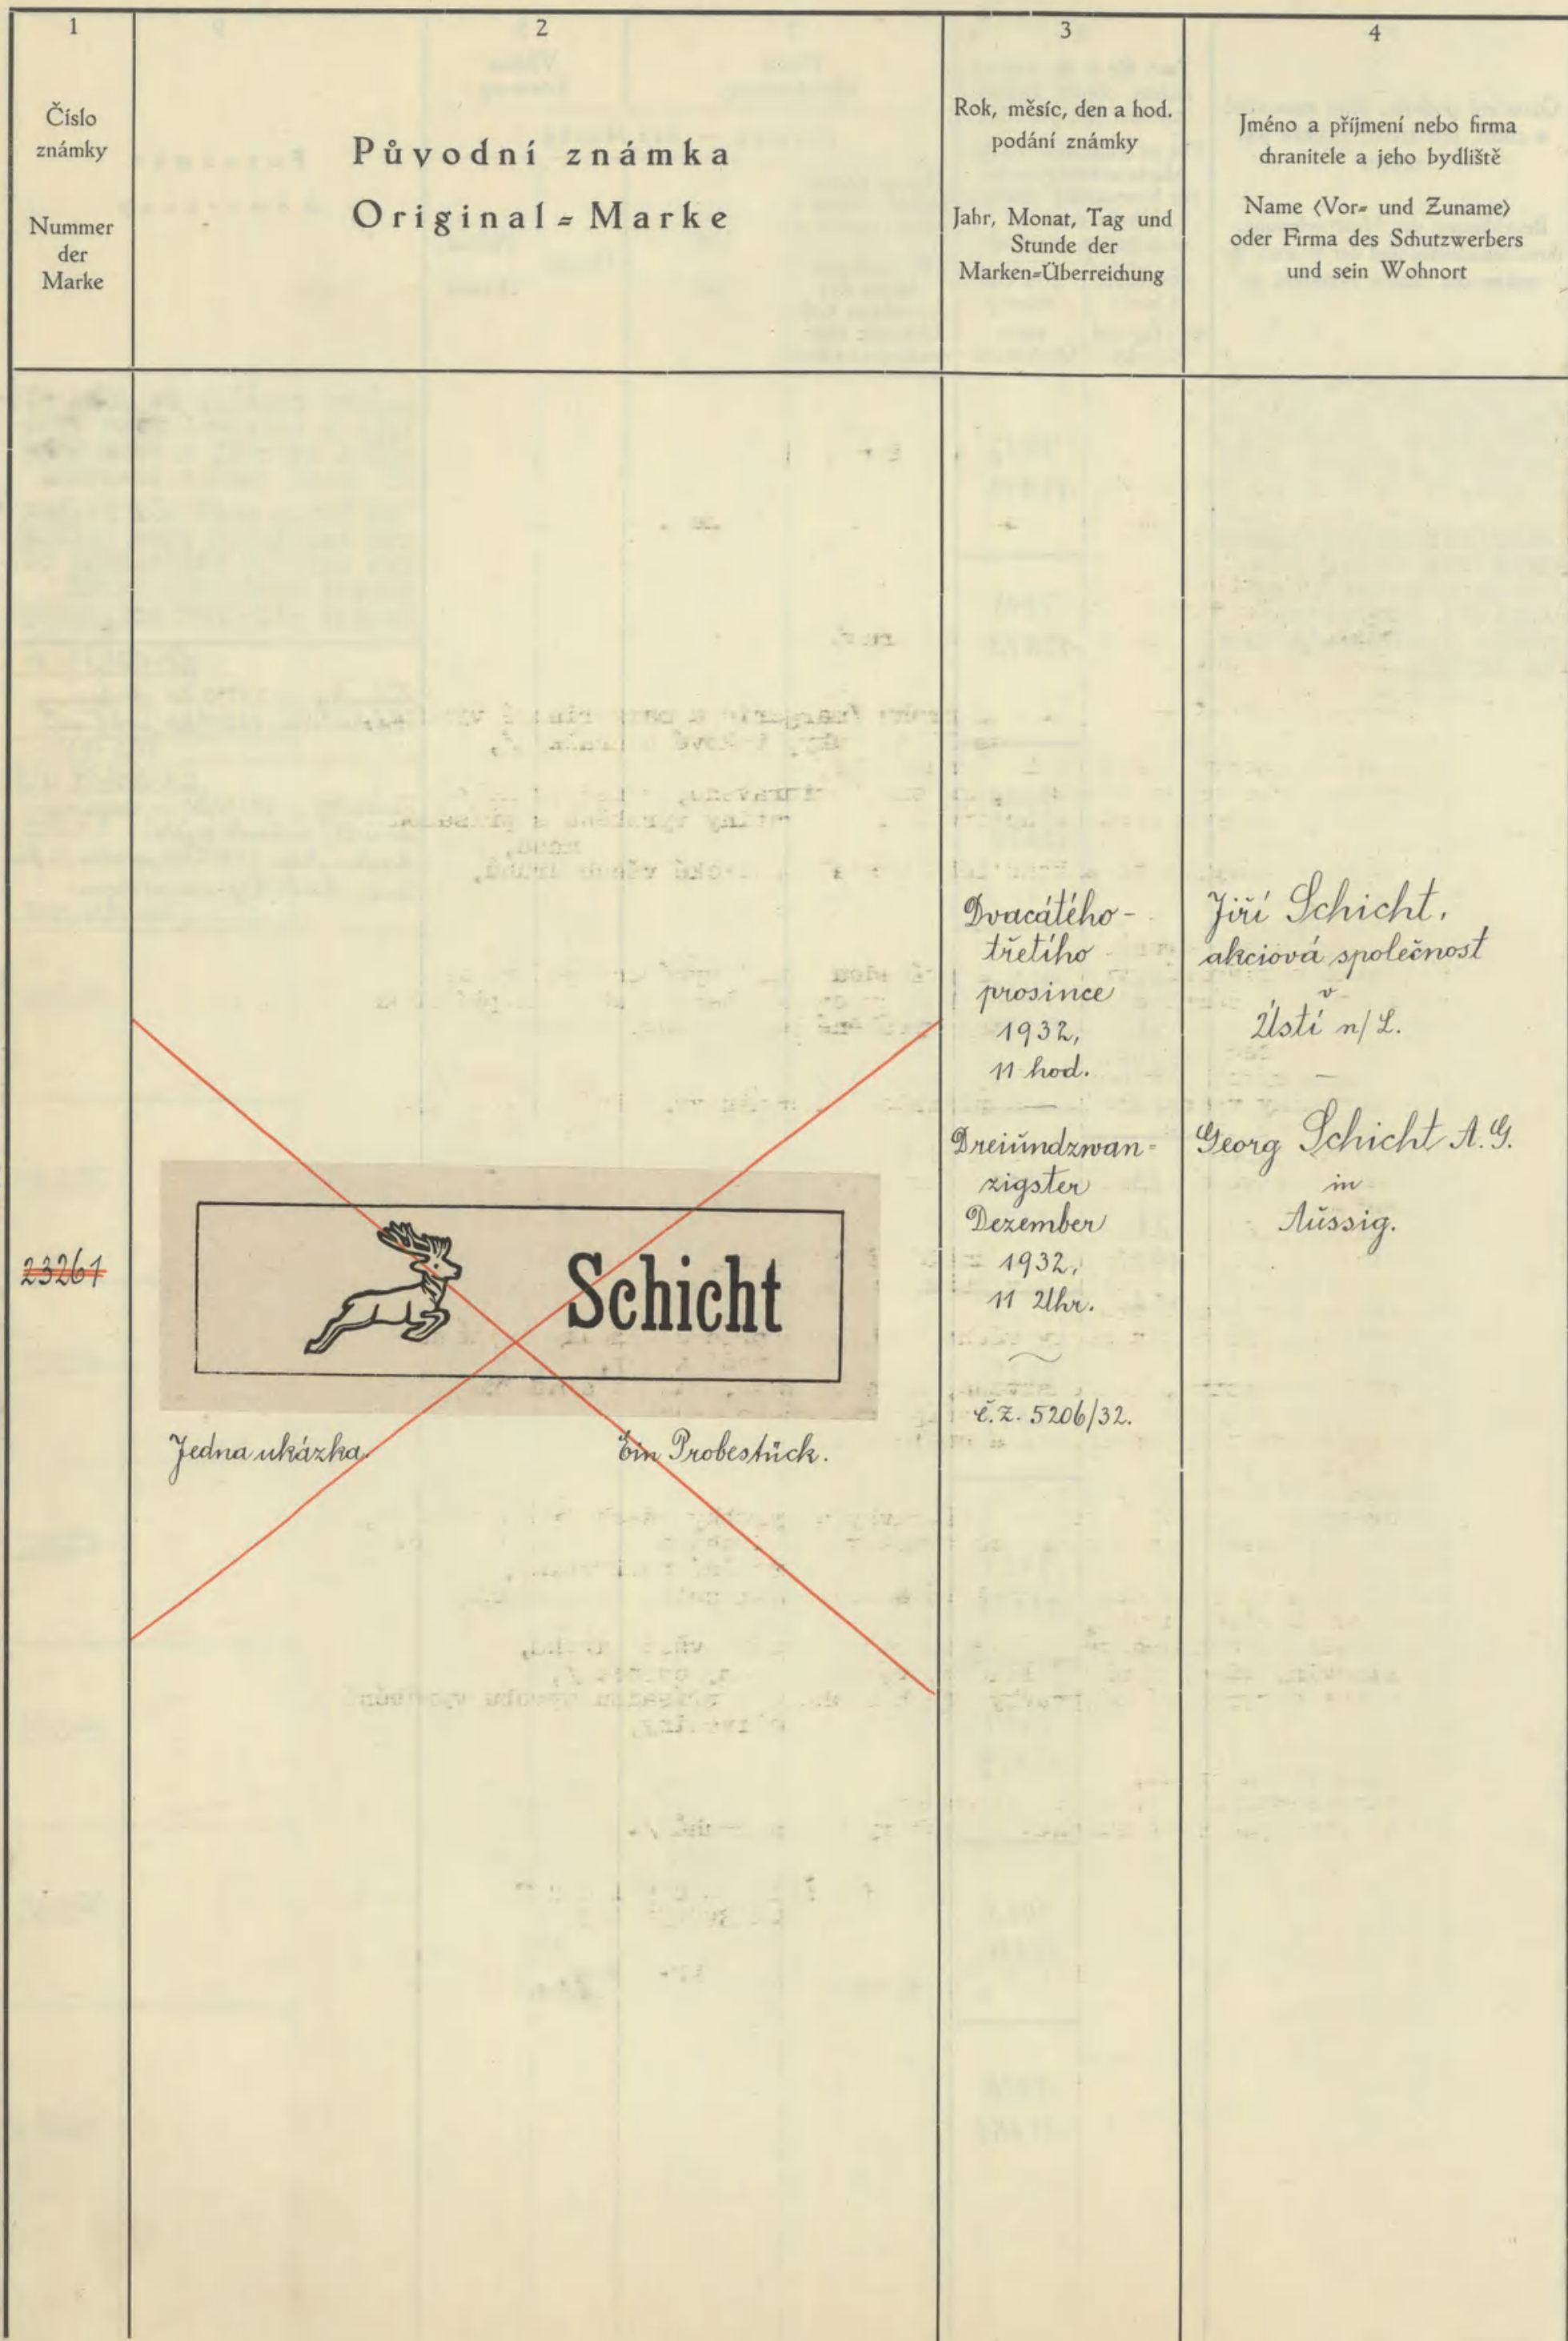 1
Číslo
známky
Nummer
der
Marke
2
Původní známka
Original = Marke
3
Rok, měsíc, den a hod.
podání známky
Jahr, Monat, Tag und
Stunde der
Marken=Überreichung
4
Jméno a příjmení nebo firma
chranitele a jeho bydliště
Name (Vor= und Zuname)
oder Firma des Schutzwerbers
und sein Wohnort
23261
Schicht
Jedna ukázka.
Ein Probestück.
Dvacátého-
třetího
prosince
1932,
11 hod.
Dreiundzwan=
zigster
Dezember
1932,
11 Uhr.
č.z. 5206/32.
Jiří Schicht,
akciová společnost
v
Ústí n/L.
Georg Schicht A.G.
in
Aussig.